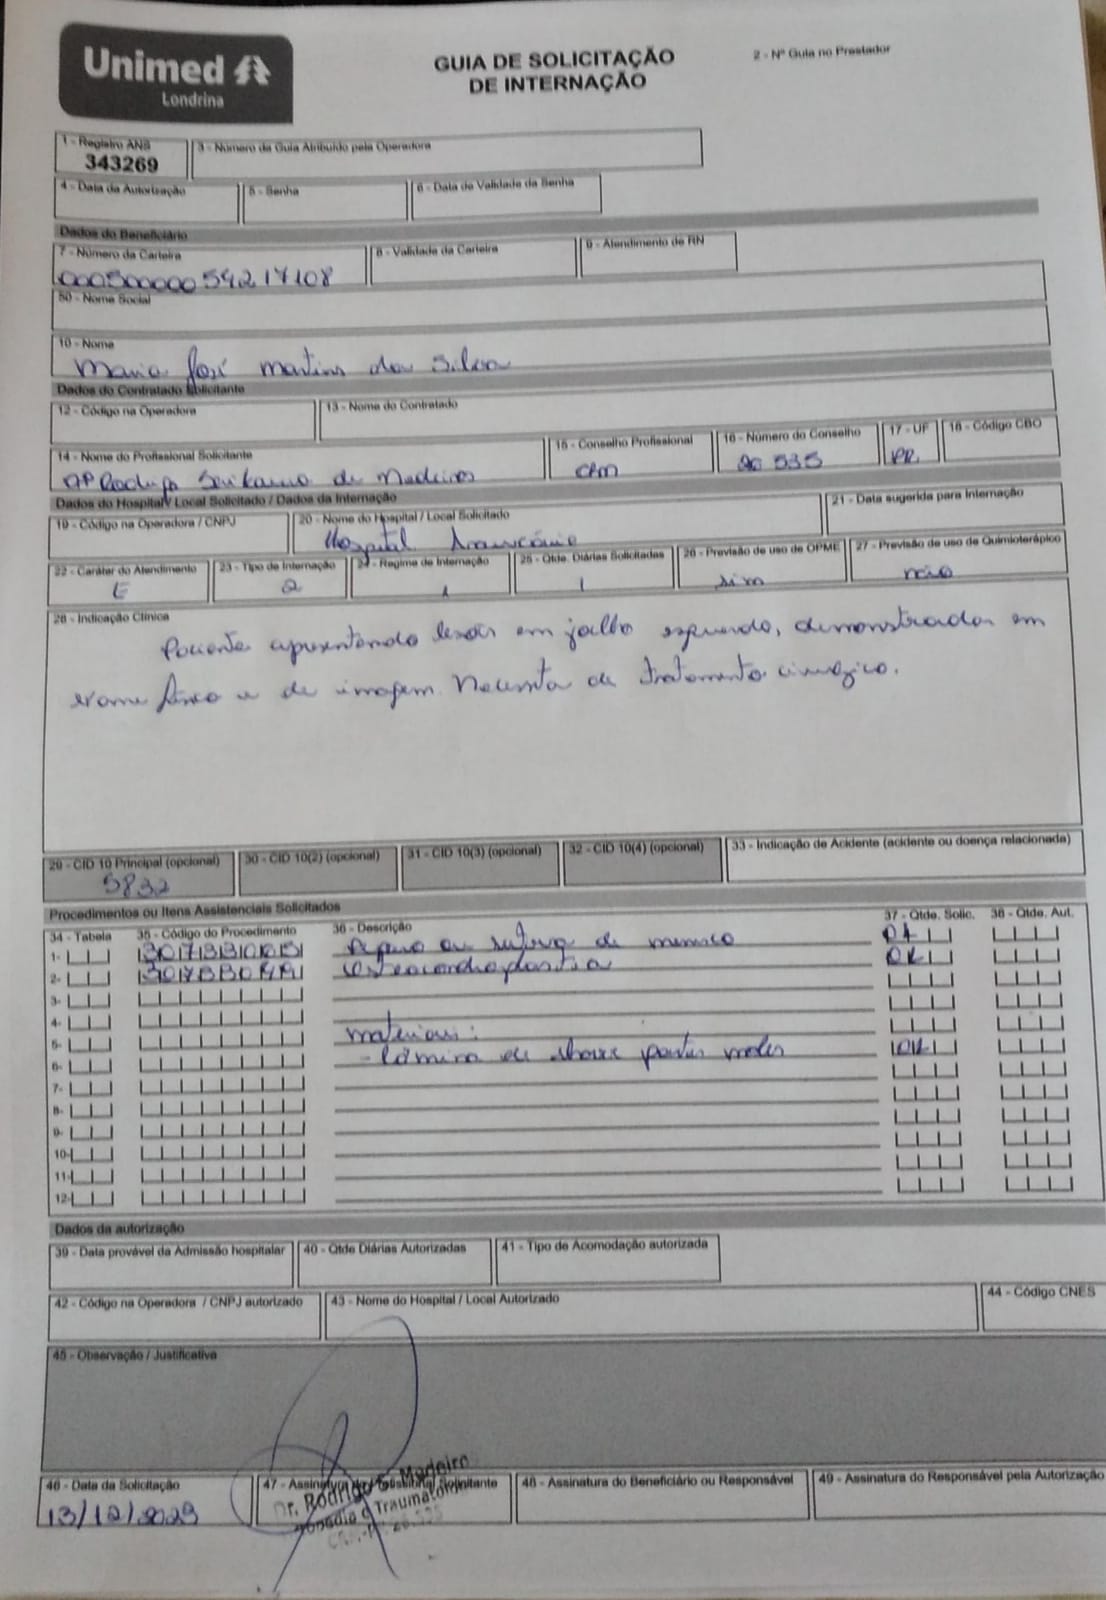 Unimed
Londrina
GUIA DE SOLICITAÇÃO
DE INTERNAÇÃO
2 - Nº Guia no Prestador
1 - Registro ANS
343269
3 - Número da Guia Atribuído pela Operadora
4 - Data da Autorização
5 - Senha
6 - Data de Validade da Senha
Dados do Beneficiário
7 - Número da Carteira
8 - Validade da Carteira
9 - Atendimento de RN
50 - Nome Social
10 - Nome
Maria José Martins da Silva
Dados do Contratado Solicitante
12 - Código na Operadora
13 - Nome do Contratado
14 - Nome do Profissional Solicitante
15 - Conselho Profissional
16 - Número do Conselho
17 - UF
18 - Código CBO
Rodrigo de Medeiros
CRM
26 535
PR
Dados do Hospital / Local Solicitado / Dados da Internação
19 - Código na Operadora / CNPJ
20 - Nome do Hospital / Local Solicitado
21 - Data sugerida para Internação
Hospital
22 - Caráter do Atendimento
23 - Tipo de Internação
24 - Regime de Internação
25 - Qtde. Diárias Solicitadas
26 - Previsão de uso de OPME
27 - Previsão de uso de Quimioterápico
E
2
1
1
sim
não
28 - Indicação Clínica
Paciente apresentando lesão em joelho esquerdo, demonstradas em
exame físico e de imagem. Necessita de tratamento cirúrgico.
29 - CID 10 Principal (opcional)
30 - CID 10(2) (opcional)
31 - CID 10(3) (opcional)
32 - CID 10(4) (opcional)
33 - Indicação de Acidente (acidente ou doença relacionada)
S832
Procedimentos ou Itens Assistenciais Solicitados
34 - Tabela
35 - Código do Procedimento
36 - Descrição
37 - Qtde. Solic.
38 - Qtde. Aut.
1-
Reparo ou sutura de menisco
01
2-
osteocondroplastia
01
3-
4-
5-
materiais:
6-
- Lâmina de shaver partes moles
01
7-
8-
9-
10-
11-
12-
Dados da autorização
39 - Data provável da Admissão hospitalar
40 - Qtde Diárias Autorizadas
41 - Tipo de Acomodação autorizada
42 - Código na Operadora / CNPJ autorizado
43 - Nome do Hospital / Local Autorizado
44 - Código CNES
45 - Observação / Justificativa
46 - Data da Solicitação
47 - Assinatura do Profissional Solicitante
48 - Assinatura do Beneficiário ou Responsável
49 - Assinatura do Responsável pela Autorização
13/12/2023
Dr. Rodrigo S. Medeiro